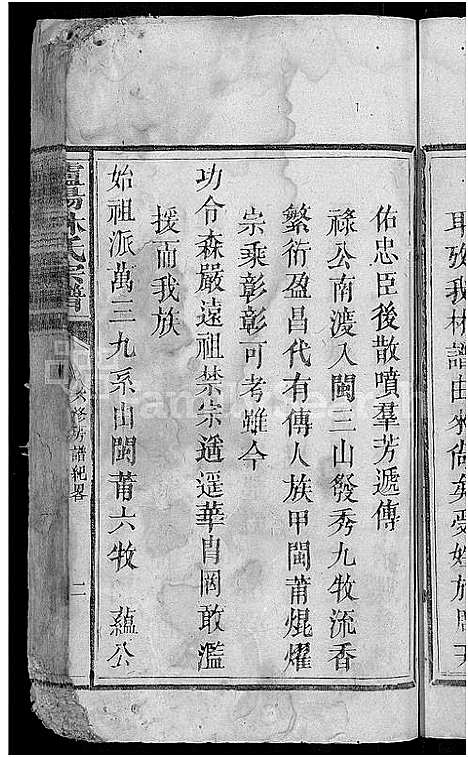 耳攷我林譜由來尚矣受姓於周王
佑忠臣後散噴羣芳遞傳
祿公南渡入閩三山發秀九牧流香
繁衍盈昌代有傳人族甲閩莆焜燿
宗乘彰彰可考雖今
功令森嚴遠祖禁宗遙遥華冑罔敢濫
援而我族
始祖派萬三九系由閩莆六牧 蘊公
林氏宗譜
修房譜紀畧
二